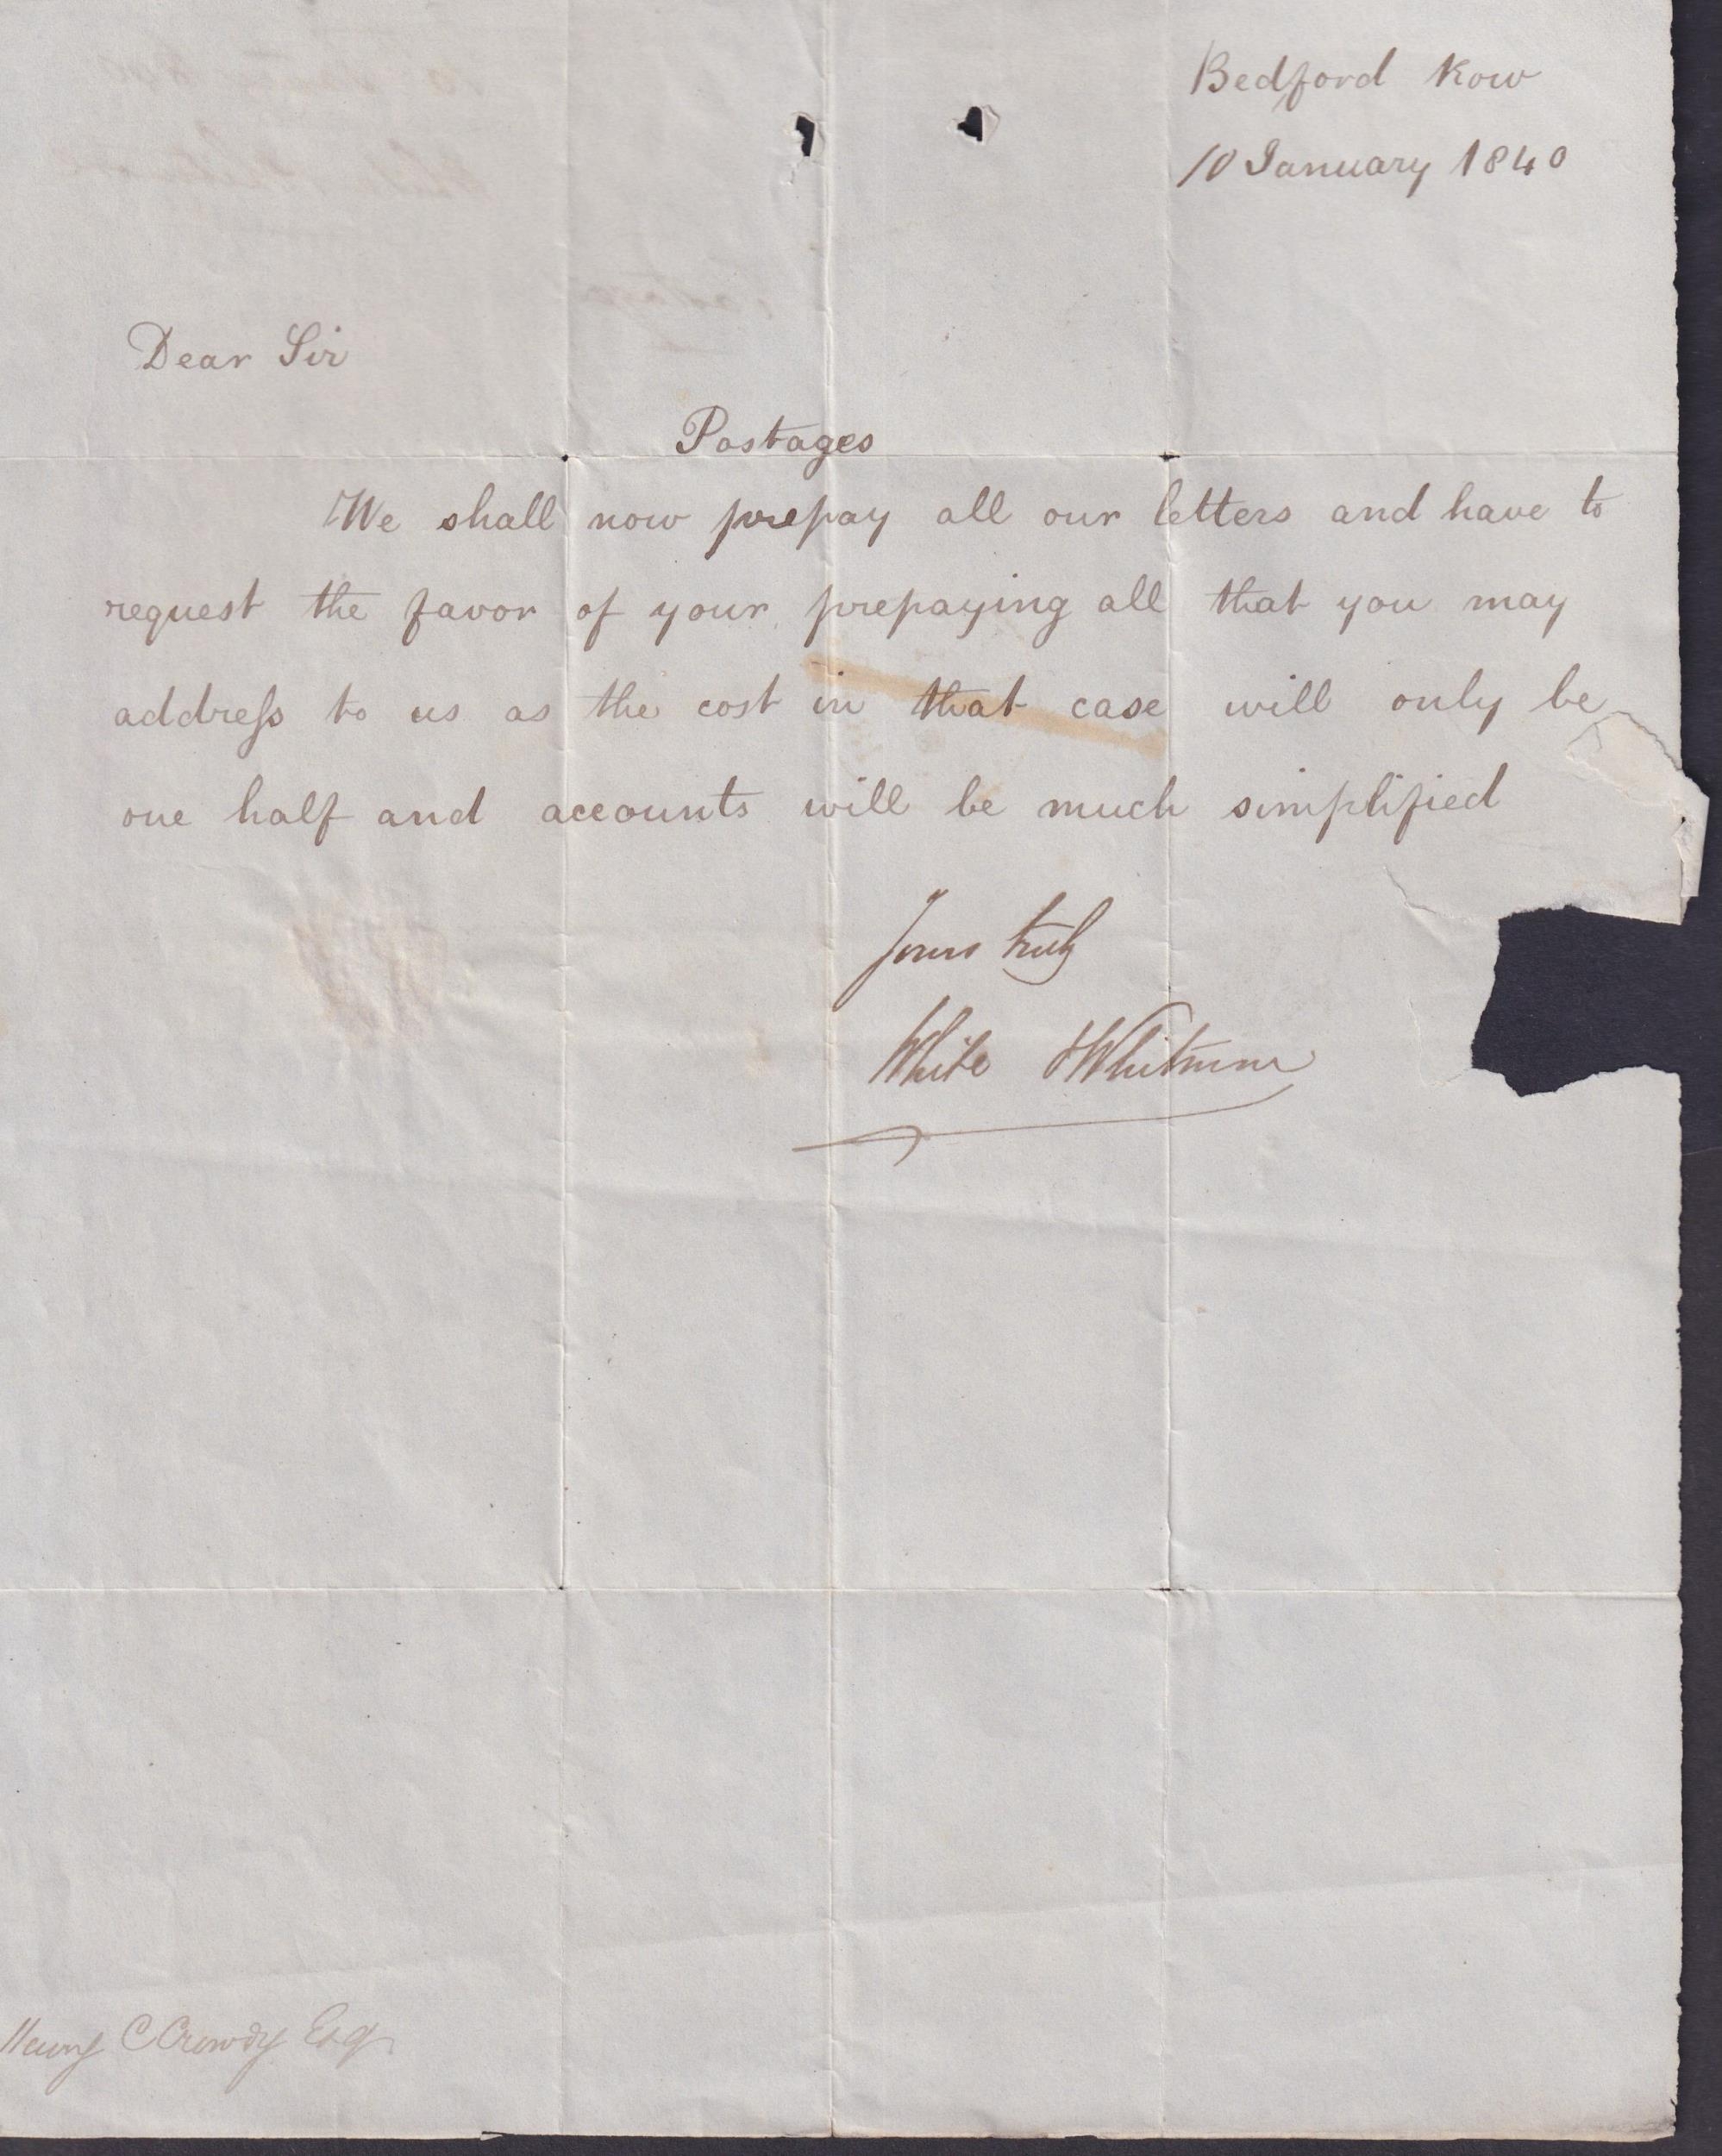 Bedford Row
10 January 1840
Dear Sir
Postages
We shall now prepay all our letters and have to
request the favor of your prepaying all that you may
addreſs to us as the cost in that case will only be
one half and accounts will be much simplified
Yours truly
White & Whitmore
Henry C Crowdy Esq